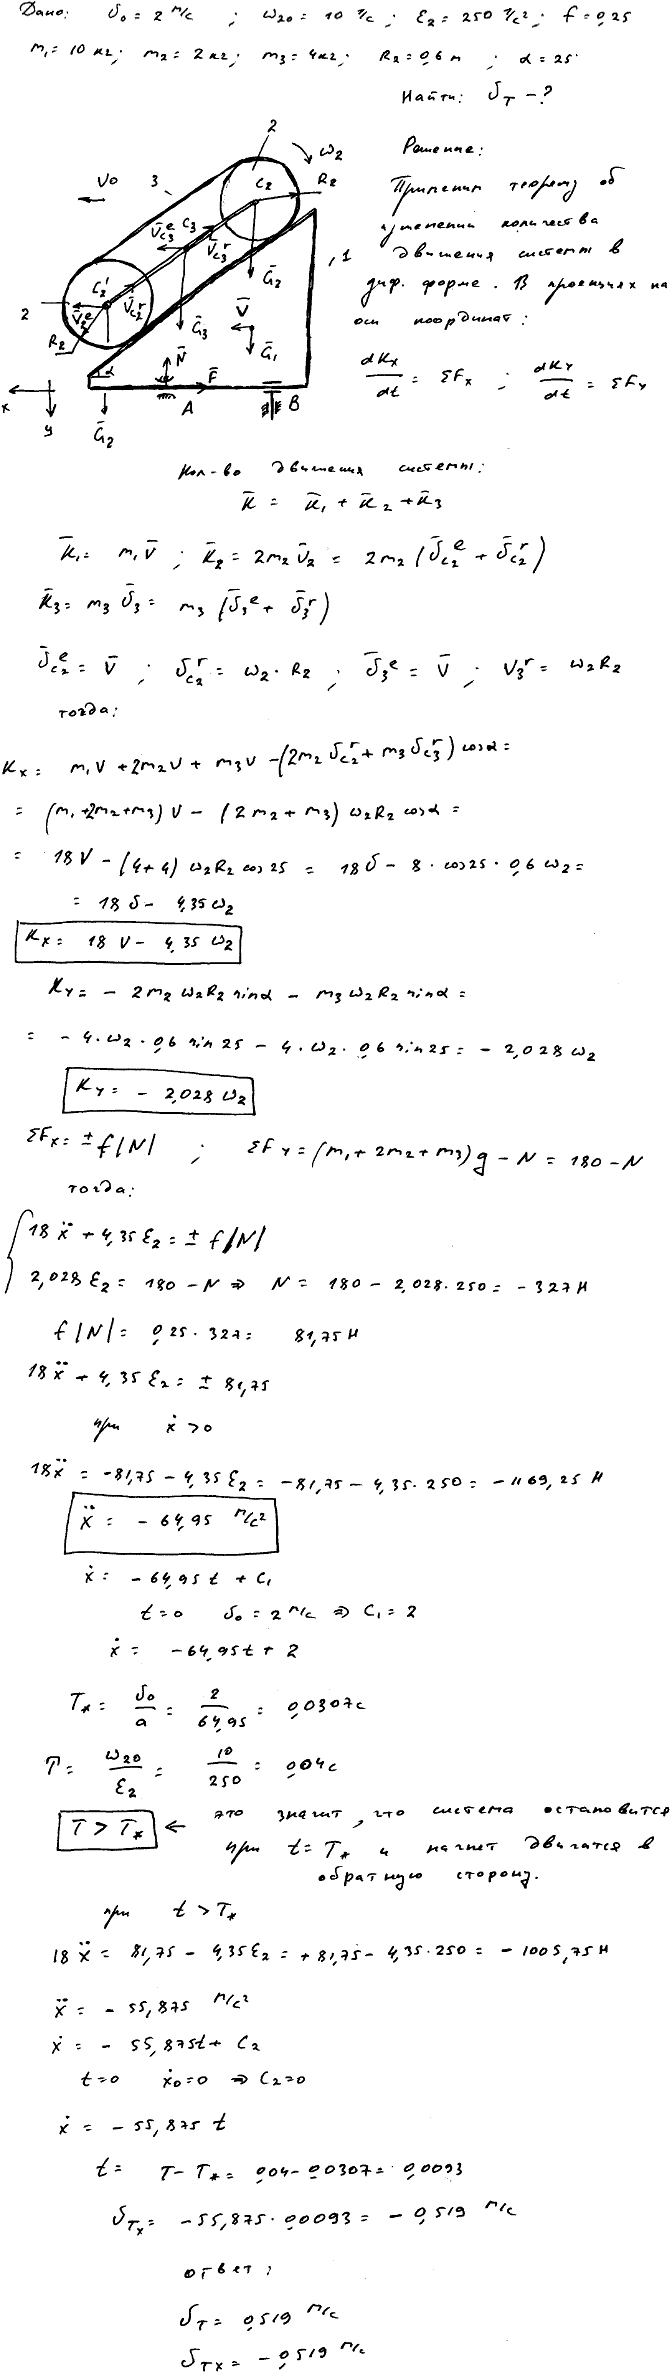 Дано: υ₀ = 2 м/с ; ω₂₀ = 10 1/с ; ε₂ = 250 1/с² ; f = 0,25
m₁ = 10 кг ; m₂ = 2 кг ; m₃ = 4 кг ; R₂ = 0,6 м ; α = 25
Найти: υ_T - ?
2
ω₂
V₀
3
C₂
R₂
V̄ᵉ_C₃
C₃
V̄ʳ_C₃
Ḡ₂
1
2
C₂'
V̄ᵉ_C₂
V̄ʳ_C₂
R₂
Ḡ₃
V̄
Ḡ₁
α
N̄
F̄
x
y
Ḡ₂
A
B
Решение:
Применим теорему об
изменении количества
движения системы в
диф. форме. В проекциях на
оси координат:
dKx/dt = ΣFx ; dKy/dt = ΣFy
Кол-во движения системы:
K̄ = K̄₁ + K̄₂ + K̄₃
K̄₁ = m₁V̄ ; K̄₂ = 2m₂ῡ₂ = 2m₂(ῡᵉ_C₂ + ῡʳ_C₂)
K̄₃ = m₃ῡ₃ = m₃(ῡ₃ᵉ + ῡ₃ʳ)
ῡᵉ_C₂ = V̄ ; υʳ_C₂ = ω₂·R₂ ; ῡ₃ᵉ = V̄ ; V₃ʳ = ω₂R₂
тогда:
Kx = m₁V + 2m₂υ + m₃V - (2m₂υʳ_C₂ + m₃υʳ_C₃) cosα =
= (m₁+2m₂+m₃)V - (2m₂ + m₃) ω₂R₂ cosα =
= 18V - (4+4) ω₂R₂ cos 25 = 18υ - 8 · cos25 · 0,6 ω₂ =
= 18υ - 4,35ω₂
Kx = 18V - 4,35 ω₂
Ky = - 2m₂ω₂R₂ sinα - m₃ω₂R₂ sinα =
= - 4·ω₂·0,6 sin 25 - 4·ω₂·0,6 sin25 = - 2,028 ω₂
Ky = - 2,028 ω₂
ΣFx = ± f|N| ; ΣFy = (m₁ + 2m₂ + m₃)g - N = 180 - N
тогда:
18ẍ + 4,35ε₂ = ± f|N|
2,028ε₂ = 180 - N ⇒ N = 180 - 2,028·250 = - 327 Н
f|N| = 0,25·327 = 81,75 Н
18ẍ + 4,35ε₂ = ± 81,75
при ẋ > 0
18ẍ = -81,75 - 4,35ε₂ = -81,75 - 4,35·250 = -1169,25 Н
ẍ = - 64,95 м/с²
ẋ = - 64,95t + C₁
t=0 υ₀ = 2 м/с ⇒ C₁ = 2
ẋ = -64,95t + 2
T* = υ₀/a = 2/64,95 = 0,0307с
T = ω₂₀/ε₂ = 10/250 = 0,04с
T > T* ← это значит, что система остановится
при t = T* и начнет двигатся в
обратную сторону.
при t > T*
18ẍ = 81,75 - 4,35ε₂ = +81,75 - 4,35·250 = - 1005,75 Н
ẍ = - 55,875 м/с²
ẋ = - 55,875t + C₂
t=0 ẋ₀=0 ⇒ C₂=0
ẋ = - 55,875 t
t = T - T* = 0,04 - 0,0307 = 0,0093
υ_Tx = -55,875·0,0093 = - 0,519 м/с
ответ:
υ_T = 0,519 м/с
υ_Tx = - 0,519 м/с